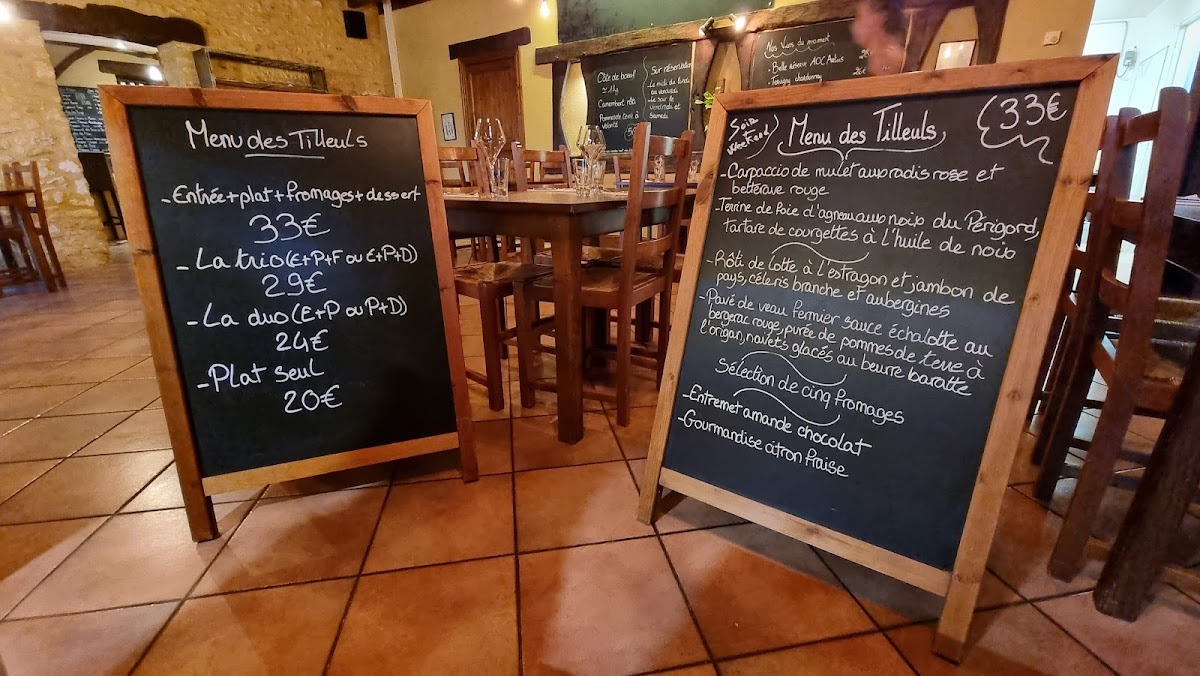 Menu des Tilleuls
-Entrée+plat+fromages+dessert
33€
-La trio (E+P+F ou E+P+D)
29€
-La duo (E+P ou P+D)
24€
-Plat seul
20€
Côte de bœuf
≃ 1kg
Camembert rôti
Sur réservation
Nos Vins du moment
Soir
Weekend
Menu des Tilleuls
33€
-Carpaccio de mulet aux radis rose et
betterave rouge
-Terrine de foie d'agneau aux noix du Périgord,
Tartare de courgettes à l'huile de noix
-Rôti de Lotte à l'estragon et jambon de
pays, céleris branche et aubergines
-Pavé de veau fermier sauce échalotte au
bergerac rouge, purée de pommes de terre à
l'origan, navets glacés au beurre baratte
Sélection de cinq fromages
-Entremet amande chocolat
-Gourmandise citron fraise